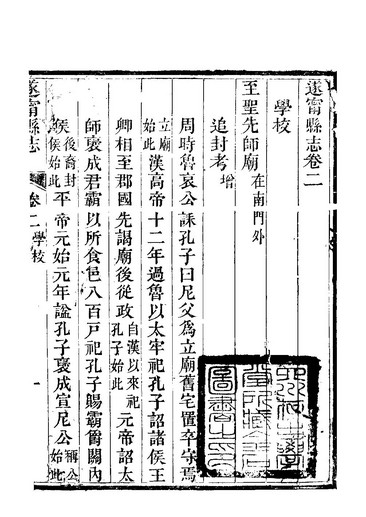 遂甯縣志卷二
學校
至聖先師廟在南門外
追封考增
周時魯哀公誄孔子曰尼父爲立廟舊宅置卒守焉
立廟始此漢高帝十二年過魯以太牢祀孔子詔諸侯王
卿相至郡國先謁廟後從政自漢以來祀孔子始此元帝詔太
師褒成君霸以所食邑八百戸祀孔子賜霸爵關內
侯後裔封侯始此平帝元始元年諡孔子褒成宣尼公稱公始此
遂甯縣志
卷二學校